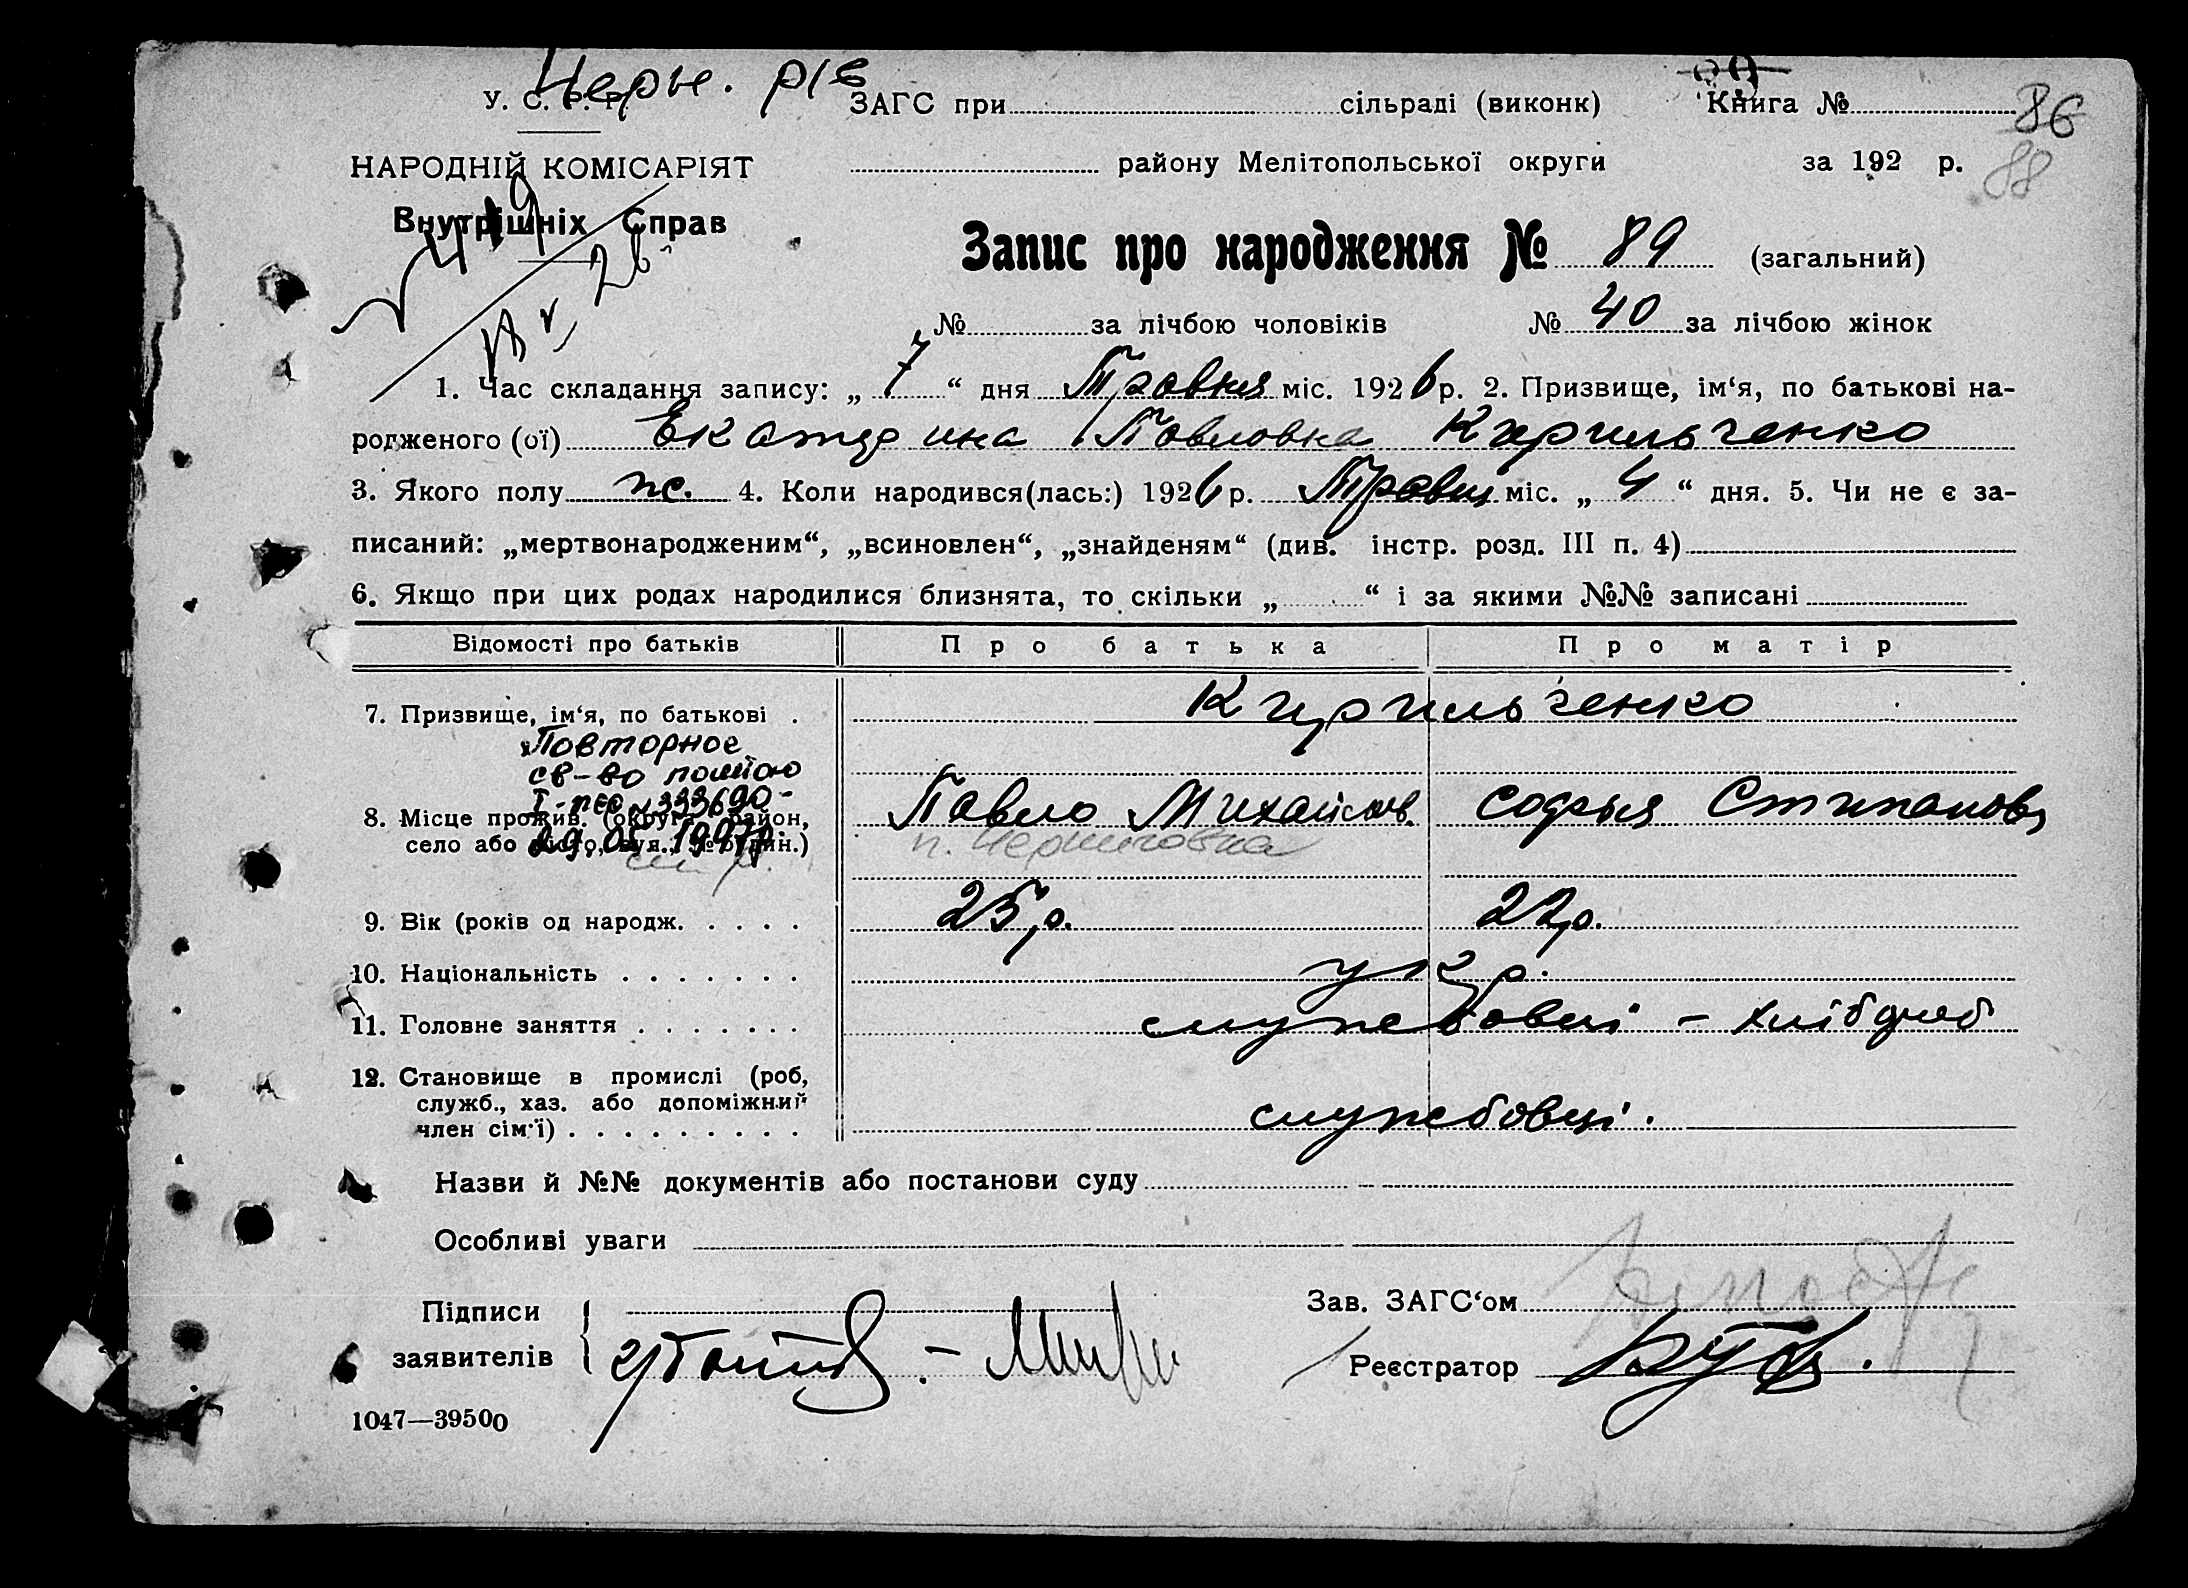 Черн. р/в
У. С. Р. Р. ЗАГС при сільраді (виконк) Книга № 86
НАРОДНІЙ КОМІСАРІЯТ району Мелітопольської округи за 192 р. 88
Внутрішніх Справ
Запис про народження № 89 (загальний)
№ за лічбою чоловіків № 40 за лічбою жінок
1. Час складання запису: „ 7 “ дня Травня міс. 1926 р. 2. Призвище, ім‘я, по батькові на-
родженого (ої) Екатерина Павловна Кирильченко
3. Якого полу ж. 4. Коли народився(лась:) 1926 р. Травня міс. „ 4 “ дня. 5. Чи не є за-
писаний: „мертвонародженим“, „всиновлен“, „знайденям“ (див. інстр. розд. III п. 4)
6. Якщо при цих родах народилися близнята, то скільки „ “ і за якими №№ записані
Відомості про батьків Про батька Про матір
7. Призвище, ім‘я, по батькові . Кирильченко
Повторное
св-во
8. Місце прожив. (округа, район, Павло Михайлов. Софья Стипановн
село або місто, вул., № будин.) п. Черниговка
9. Вік (років од народж. . . . . 25 р. 22 р.
10. Національність . . . . . . . укр.
11. Головне заняття . . . . . . . службовці - хлібороб
12. Становище в промислі (роб,
служб., хаз. або допоміжний
член сім‘ї) . . . . . . . . . службовці.
Назви й №№ документів або постанови суду
Особливі уваги
Підписи Зав. ЗАГС‘ом
заявителів Реєстратор
1047—39500